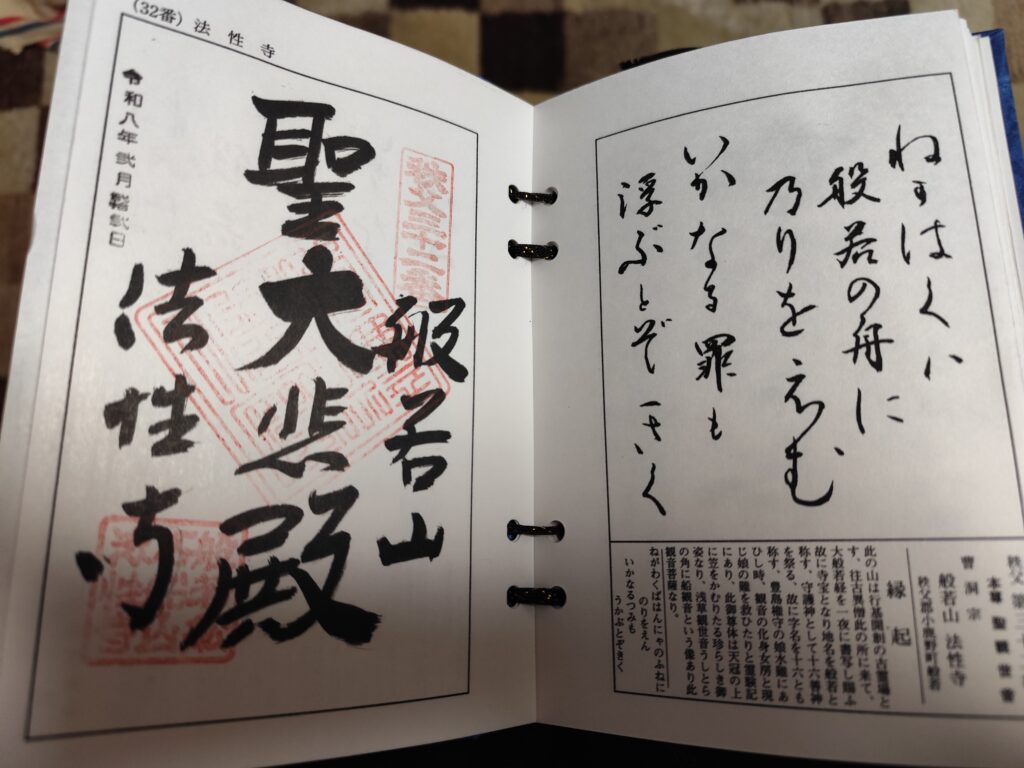 (32番) 法性寺
秩父三十二番
般若山
聖大悲殿
法性寺
令和八年弐月
ねがはくは
般若の舟に
乃りをえむ
いかなる罪も
浮ぶとぞきく
秩父第三十二番
本尊 聖観世音
曹洞宗
般若山 法性寺
秩父郡小鹿野町般若
縁起
此の山は行基開創の古霊場と
す、往古異僧此の所に来て、
大般若経を一夜に書写し賜ふ
故に寺宝となり地名を般若と
称す、守護神として十六善神
を祭る、故に字名を十六とも
称す、豊島権守の娘水難にあ
ひし時、観音の化身女房と現
じ娘の難を救ひたりと霊験記
にあり、此御尊体は天冠の上
に笠をかむりたる珍らしき御
姿なり、浅草観世音うしとら
の角に船観音という像あり此
観音菩薩なり。
ねがわくばはんにゃのふねに
のりをえん
いかなるつみも
うかぶとぞきく